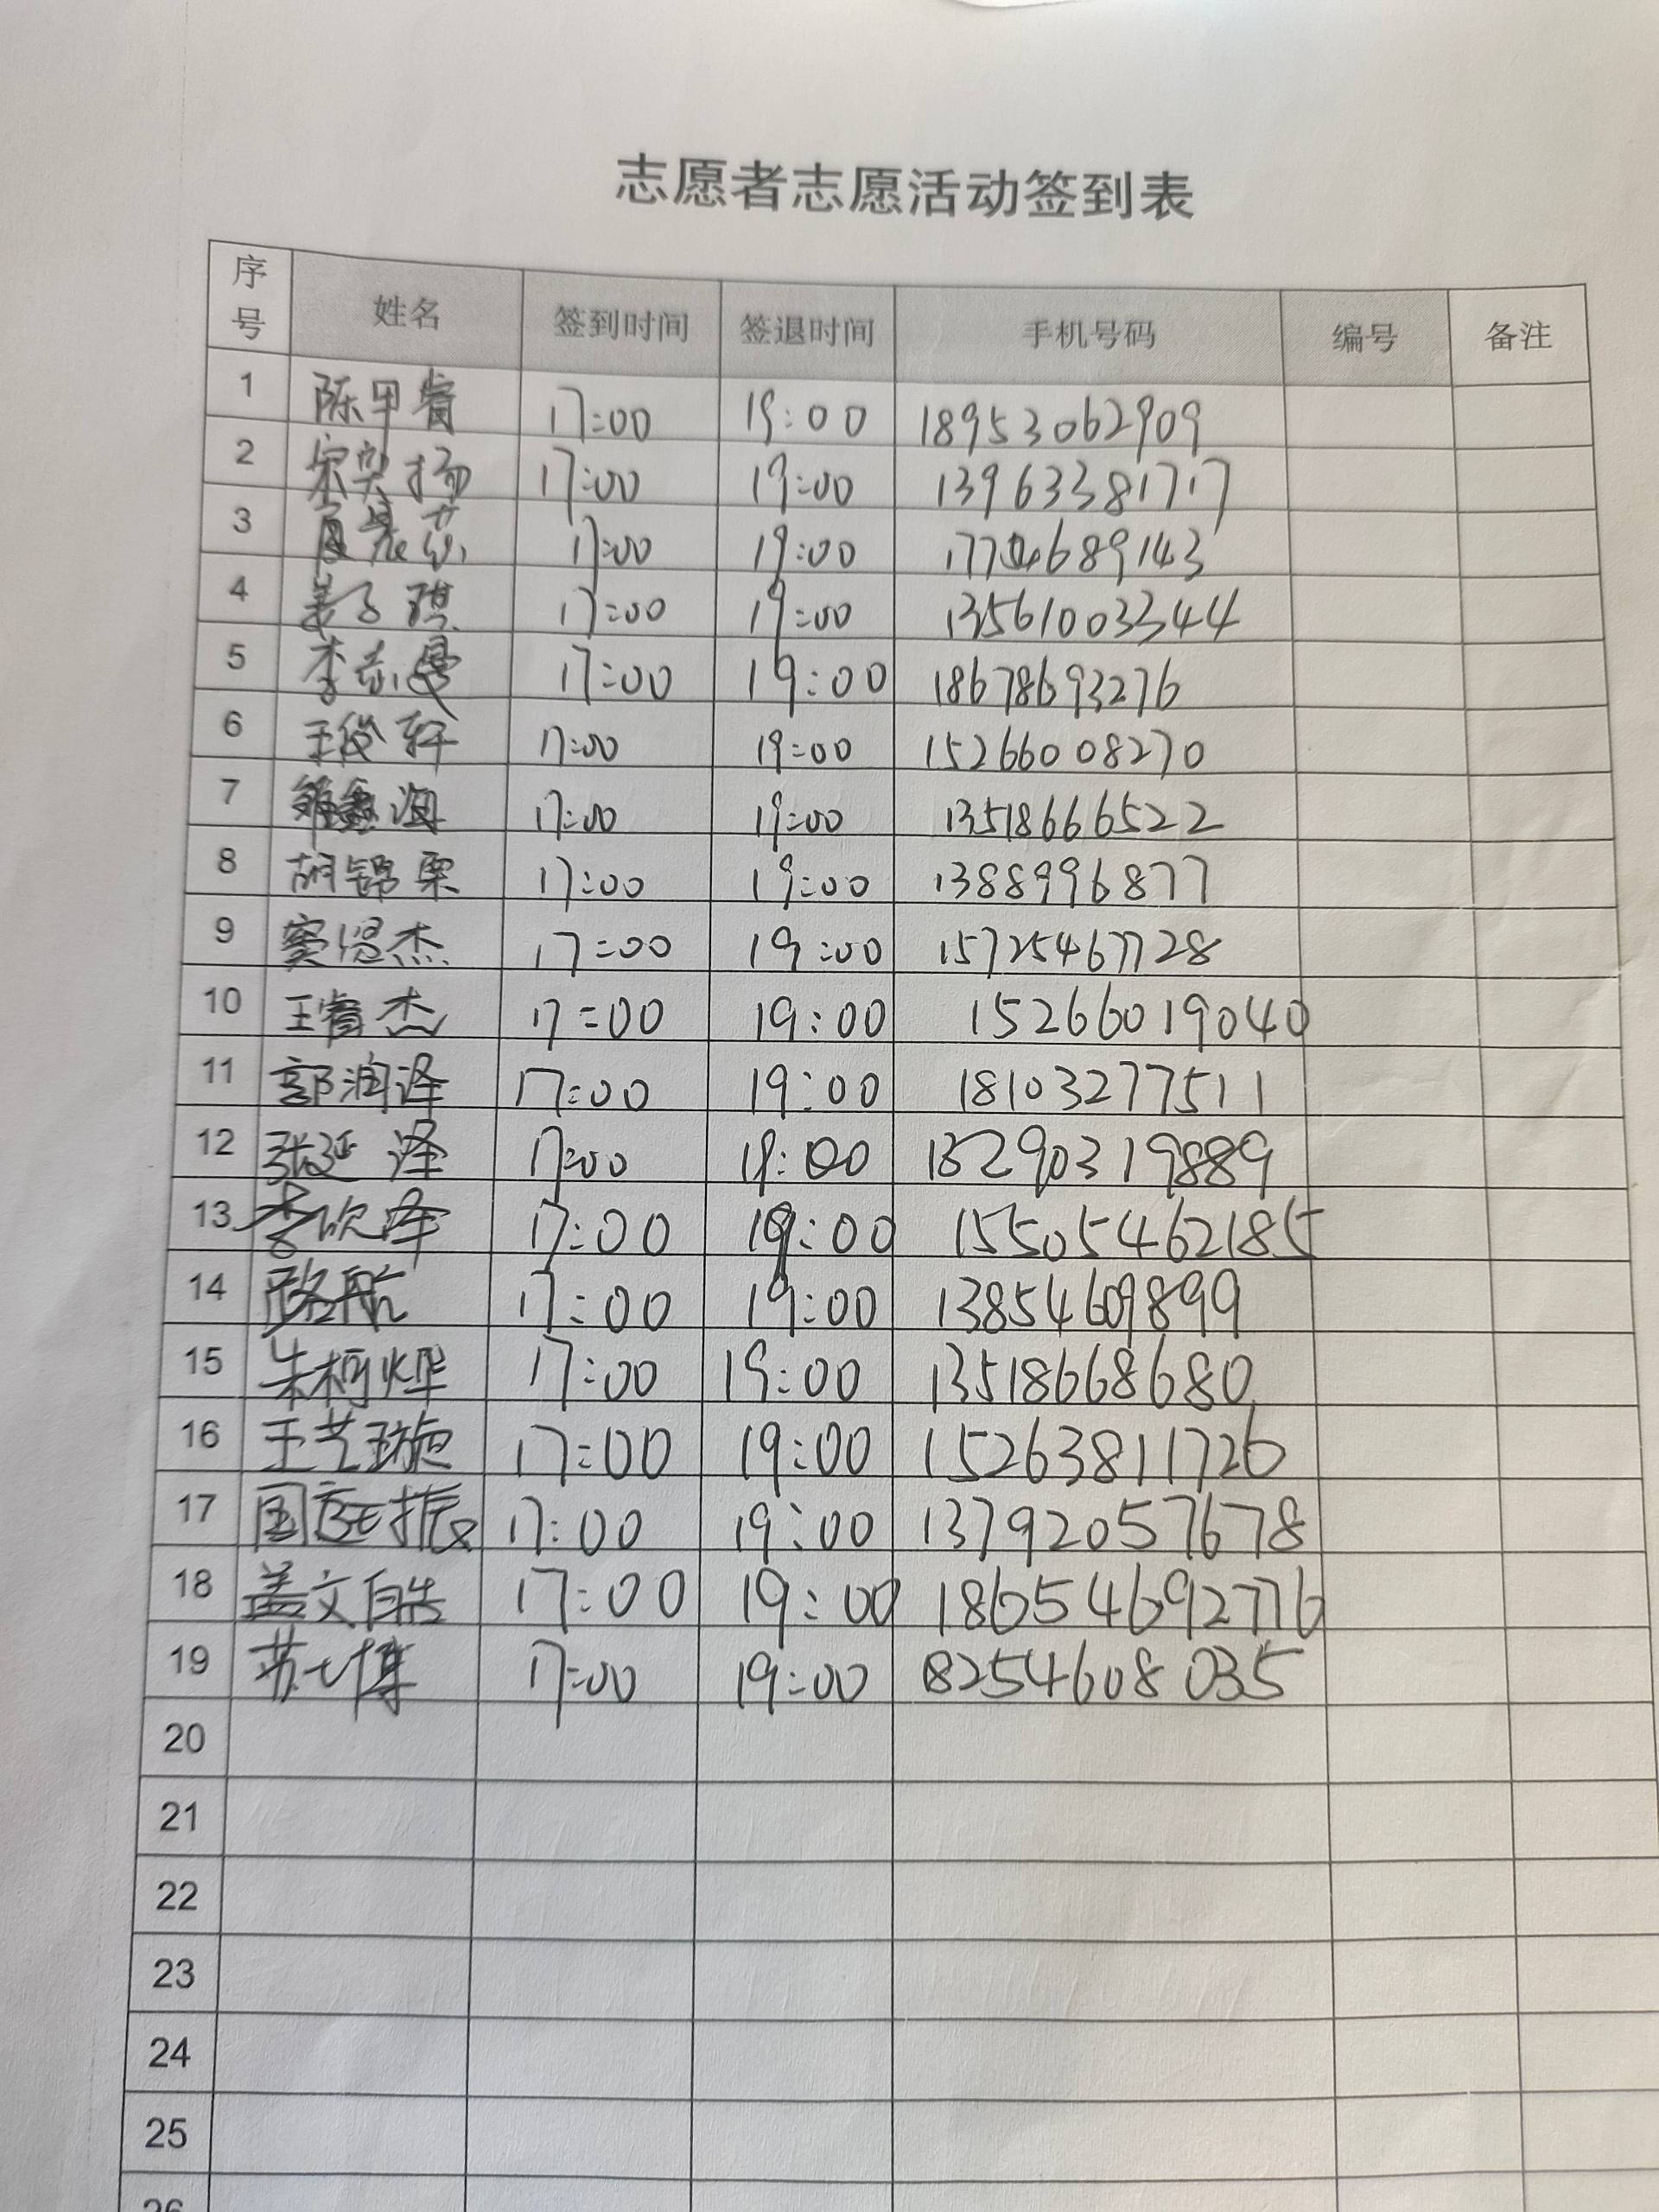 志愿者志愿活动签到表
序号 姓名 签到时间 签退时间 手机号码 编号 备注
1 陈甲睿 17:00 19:00 18953062909
2 宋奕扬 17:00 19:00 13963381717
3 17:00 19:00
4 姜子琪 17:00 19:00 13561003344
5 李志曼 17:00 19:00 18678693276
6 王俊轩 17:00 19:00 15266008270
7 17:00 19:00 13518666522
8 胡锦栗 17:00 19:00 1388996877
9 窦偲杰 17:00 19:00 15725467728
10 王睿杰 17:00 19:00 15266019040
11 郭润泽 17:00 19:00 18103277511
12 张延泽 17:00 19:00
13 李欣泽 17:00 19:00 15505462185
14 路航 17:00 19:00 13854609899
15 朱柯烨 17:00 19:00 13518668680
16 王艺璇 17:00 19:00 15263811726
17 国庭振 17:00 19:00 13792057678
18 盖文皓 17:00 19:00 18654692776
19 苏七博 17:00 19:00 18254608035
20
21
22
23
24
25
26